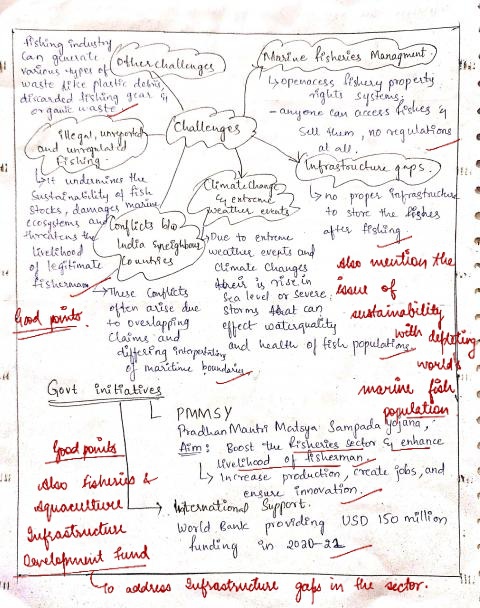 fishing industry
can generate
various types of
waste like plastic debris,
discarded fishing gear &
organic waste
Other challenges
Marine fisheries Managment.
↳ openaccess fishery property
rights systems;
- anyone can access fishes &
sell them, no regulations
at all.
Challenges
Illegal, unreported
and unregulated
fishing.
↳ It undermines the
sustainability of fish
stocks, damages marine
ecosystems and
threatens the
livelihood
of legitimate
fisherman
Good points.
Climate Change
& extreme
weather events
Infrastructure gaps.
↳ no proper infrastructure
to store the fishes
after fishing.
Conflicts b/w
India & neighbour
Countries
↳ These conflicts
often arise due
to overlapping
Claims and
differing interpretations
of maritime boundaries
↳ Due to extreme
weather events and
Climate Changes
their is rise in
Sea level or severe
storms that can
effect waterquality
and health of fish populations.
Also mention the
issue of
sustainability
with depleting
world's
marine fish
population
Govt initiatives
↳ PMMSY
Pradhan Mantri Matsya Sampada Yojana,
Aim: Boost the fisheries sector & enhance
livelihood of fisherman.
↳ Increase production, create jobs, and
ensure innovation.
→ International Support.
World Bank providing USD 150 million
funding in 2020-21
Good points
Also fisheries &
Aquaculture
Infrastructure
Development fund
↳ To address Infrastructure gaps in the sector.